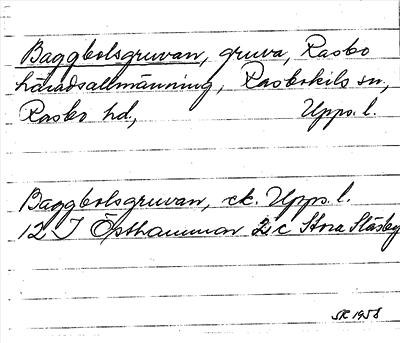 Baggbolsgruvan, gruva, Rasbo
häradsallmänning, Rasbokils sn,
Rasbo hd., Upps. l.
Baggbolsgruvan, ek. Upps. l.
12 I Östhammar 2 c Stora Stäsby
SR 1958